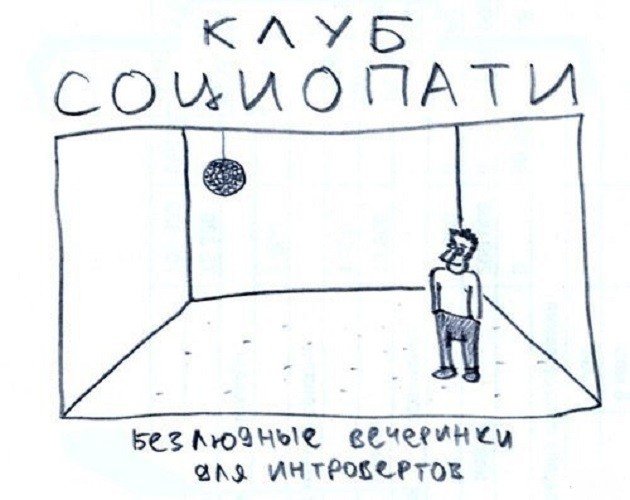 КЛУБ
СОЦИОПАТИ
БЕЗЛЮДНЫЕ ВЕЧЕРИНКИ
ДЛЯ ИНТРОВЕРТОВ